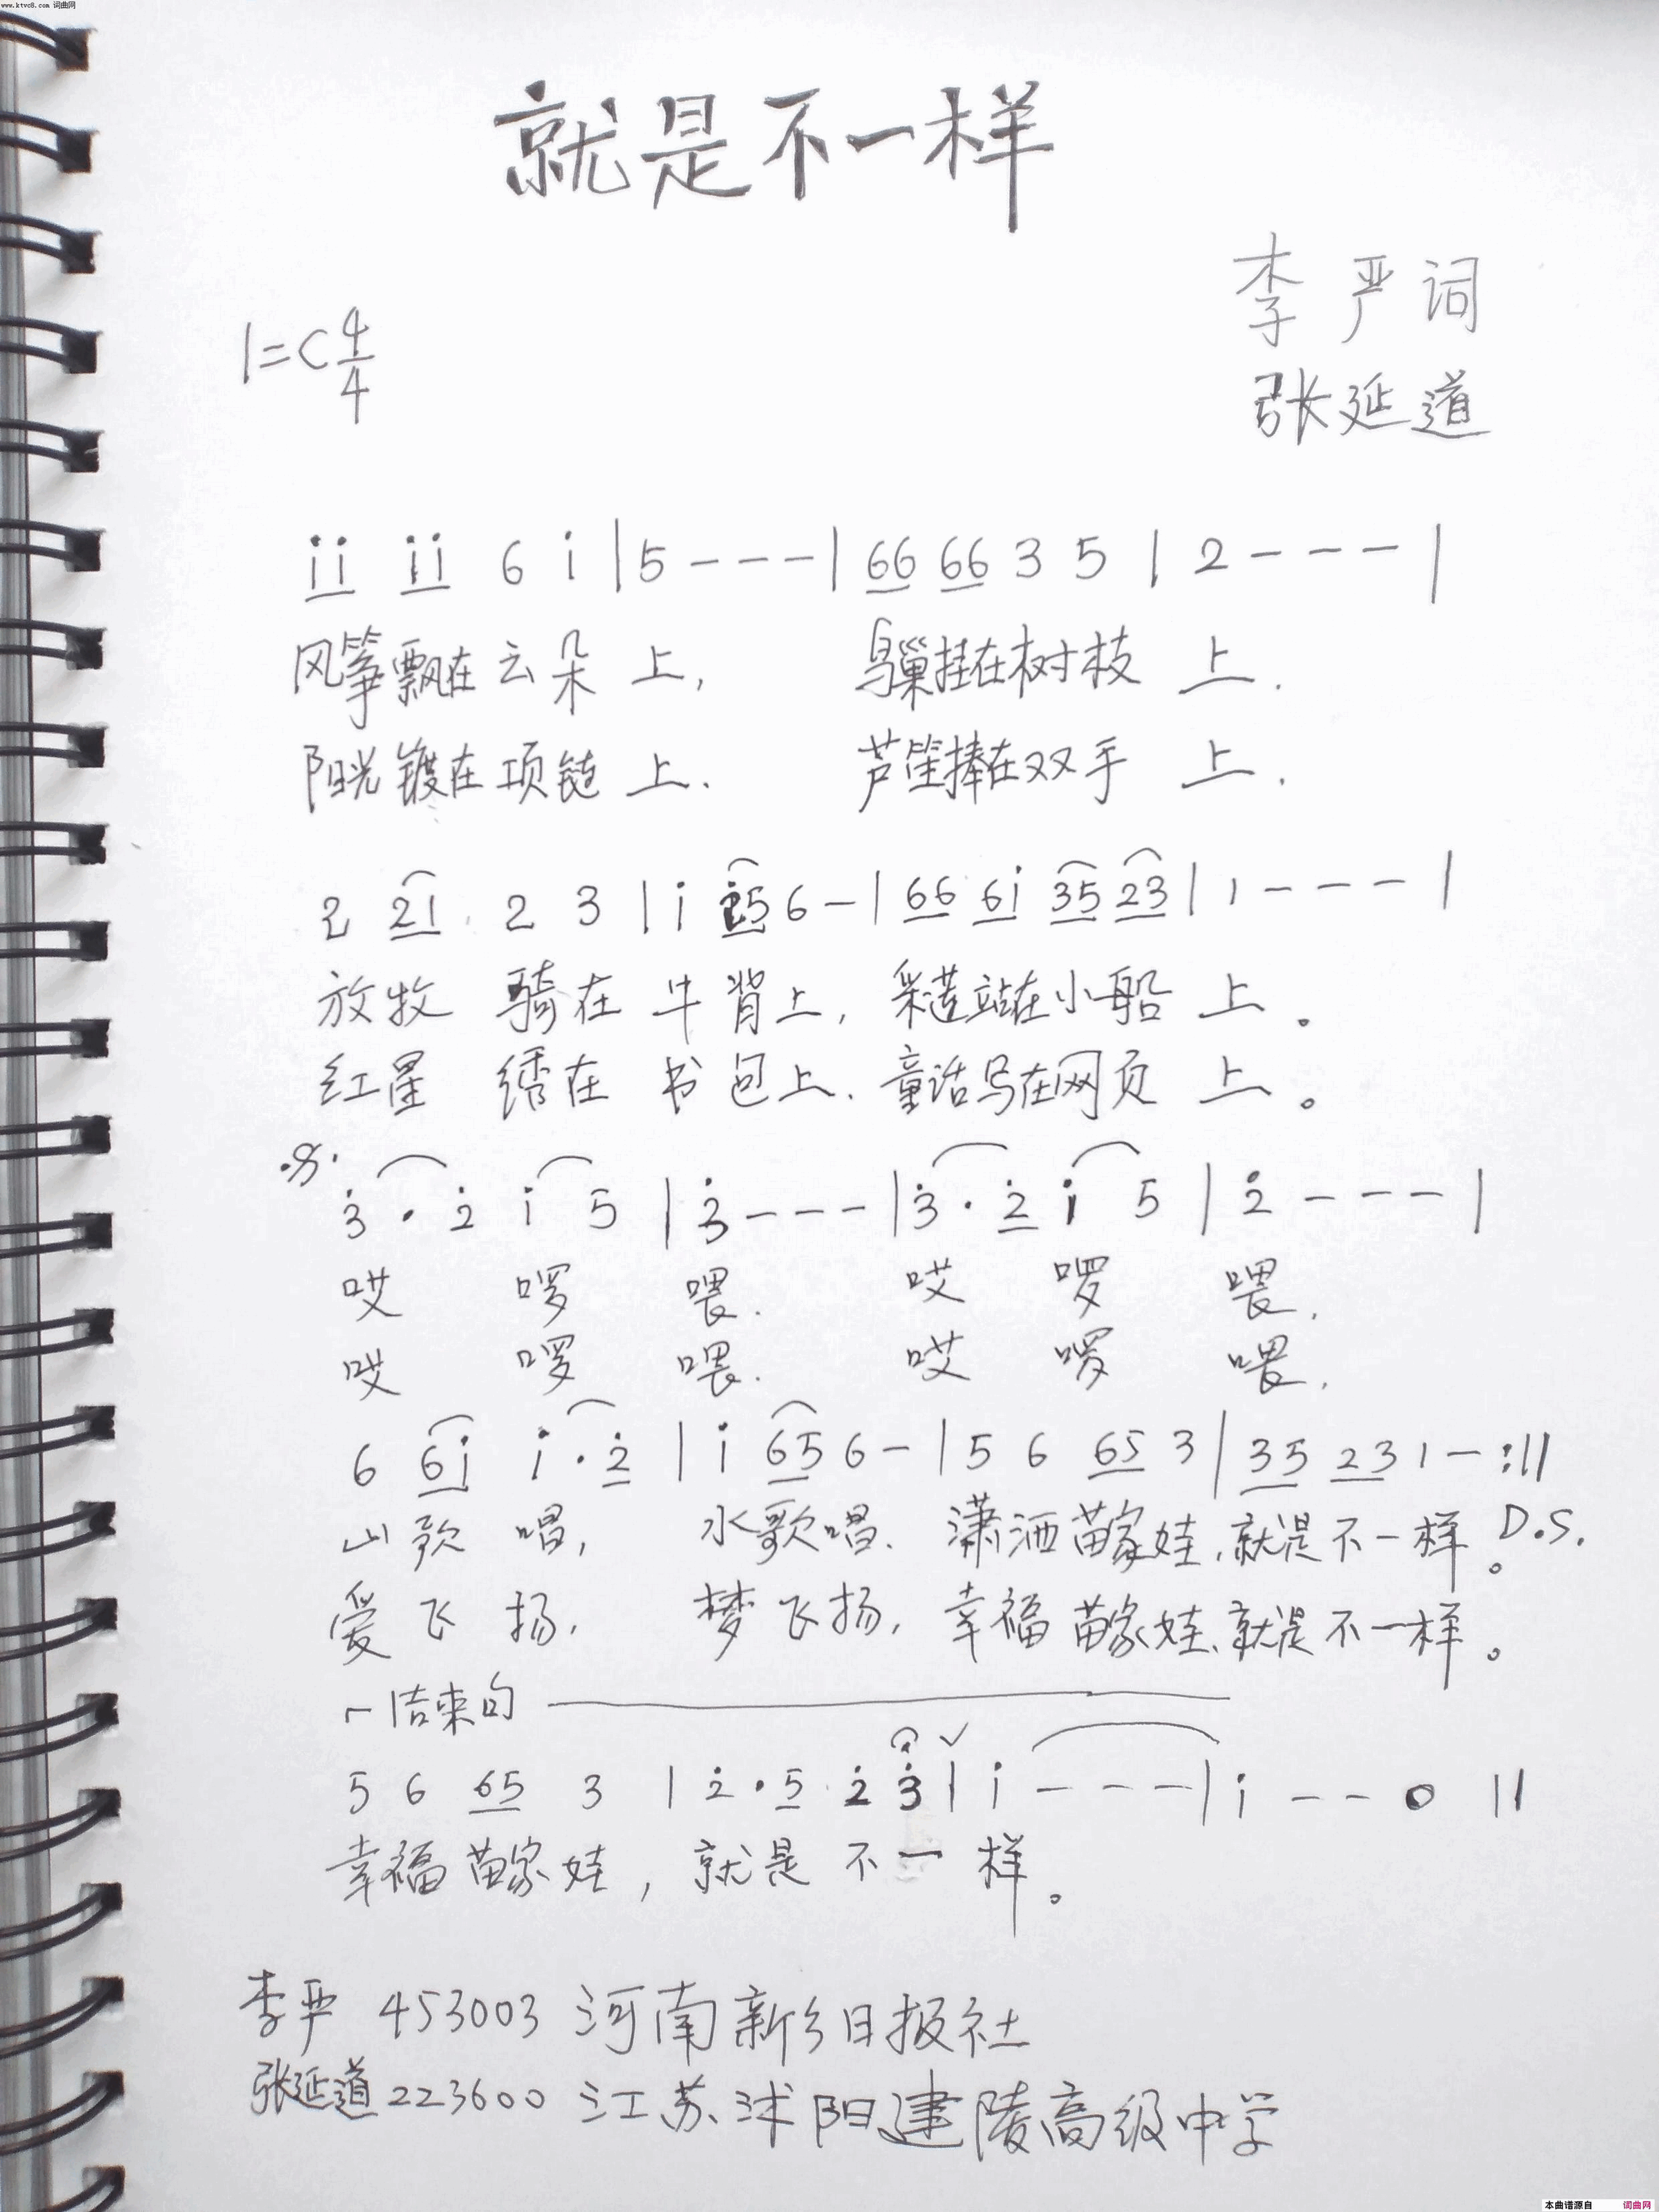 www.ktvc8.com 词曲网
就是不一样
李严词
1=C 4/4
张延道
i̇i̇ i̇i̇ 6 i̇ | 5 - - - | 66 66 3 5 | 2 - - - |
风筝飘在云朵上, 鸟巢挂在树枝上.
阳光镀在项链上. 芦笙捧在双手上.
2 21 2 3 | i̇ i̇5 6 - | 66 6i̇ 35 23 | 1 - - - |
放牧骑在牛背上, 采莲站在小船上。
红星绣在书包上. 童话写在网页上。
3̇ · 2̇ i̇ 5 | 3̇ - - - | 3̇ · 2̇ i̇ 5 | 2̇ - - - |
哎 啰 喂. 哎 啰 喂,
哎 啰 喂. 哎 啰 喂,
6 6i̇ i̇ · 2̇ | i̇ 65 6 - | 5 6 65 3 | 35 23 1 - :||
山歌唱, 水歌唱. 潇洒苗家娃,就是不一样。 D.S.
爱飞扬, 梦飞扬, 幸福苗家娃、就是不一样。
结束句
5 6 65 3 | 2̇ · 5 2̇ 3̇ | i̇ - - - | i̇ - - 0 ||
幸福苗家娃, 就是不一样。
李严 453003 河南新乡日报社
张延道 223600 江苏沭阳建陵高级中学
本曲谱源自 词曲网